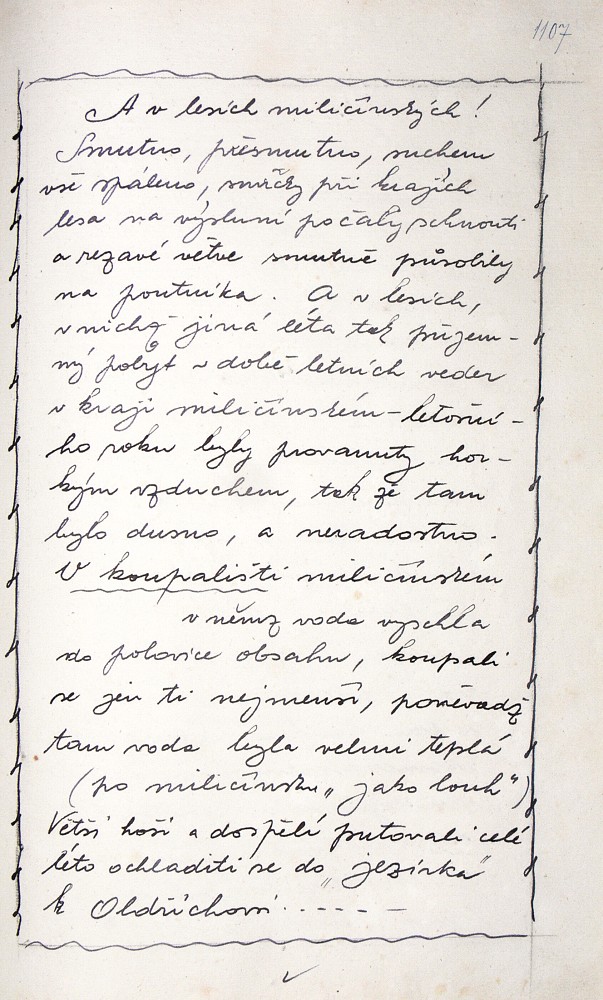 1107
A v lesích miličínských!
Smutno, přesmutno, suchem
vše spáleno, smrčky při krajích
lesa na výsluní počaly schnouti
a rezavé větve smutně působily
na poutníka. A v lesích,
v nichž jiná léta tak příjem-
ný pobyt v době letních veder
v kraji miličínském - letošní-
ho roku byly provanuty hor-
kým vzduchem, tak že tam
bylo dusno, a neradostno.
V koupališti miličínském
v němž voda vyschla
do polovice obsahu, koupali
se jen ti nejmenší, poněvadž
tam voda byla velmi teplá
(po miličínsku „jako louh")
Větší hoši a dospělí putovali celé
léto ochladiti se do „jezírka"
k Oldřichovi - - - - -